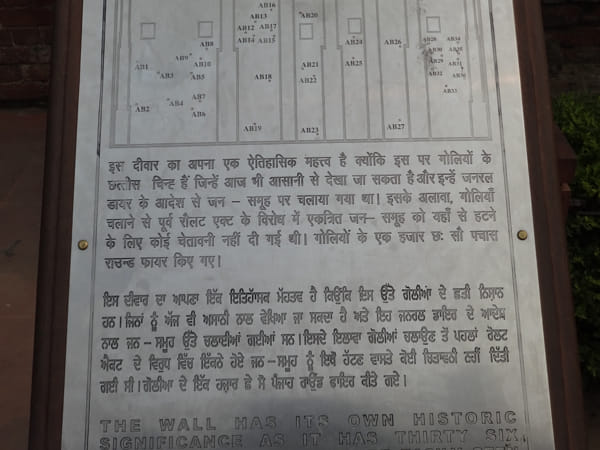 AB16
AB13 AB20
AB12 AB17 AB24 AB28 AB34
AB8 AB14 AB15 AB26 AB30 AB35
AB9 AB29
AB1 AB10 AB21 AB25 AB31
AB3 AB5 AB18 AB22 AB32
AB33
AB7
AB2 AB4 AB6
AB19 AB23 AB27
इस दीवार का अपना एक ऐतिहासिक महत्त्व है क्योंकि इस पर गोलियों के
छत्तीस चिन्ह हैं जिन्हें आज भी आसानी से देखा जा सकता है और इन्हें जनरल
डायर के आदेश से जन – समूह पर चलाया गया था। इसके अलावा, गोलियाँ
चलाने से पूर्व रौलट एक्ट के विरोध में एकत्रित जन– समूह को यहाँ से हटने
के लिए कोई चेतावनी नहीं दी गई थी। गोलियों के एक हजार छः सौ पचास
राउन्ड फायर किए गए।
ਇਸ ਦੀਵਾਰ ਦਾ ਆਪਣਾ ਇੱਕ ਇਤਿਹਾਸਕ ਮਹੱਤਵ ਹੈ ਕਿਉਂਕਿ ਇਸ ਉੱਤੇ ਗੋਲੀਆਂ ਦੇ ਛਤੀ ਨਿਸ਼ਾਨ
ਹਨ। ਜਿਨਾਂ ਨੂੰ ਅੱਜ ਵੀ ਆਸਾਨੀ ਨਾਲ ਵੇਖਿਆ ਜਾ ਸਕਦਾ ਹੈ ਅਤੇ ਇਹ ਜਨਰਲ ਡਾਇਰ ਦੇ ਆਦੇਸ਼
ਨਾਲ ਜਨ – ਸਮੂਹ ਉੱਤੇ ਚਲਾਈਆਂ ਗਈਆਂ ਸਨ। ਇਸਦੇ ਇਲਾਵਾ ਗੋਲੀਆਂ ਚਲਾਉਣ ਤੋਂ ਪਹਲਾਂ ਰੋਲਟ
ਐਕਟ ਦੇ ਵਿਰੁਧ ਵਿੱਚ ਇੱਕਠੇ ਹੋਏ ਜਨ – ਸਮੂਹ ਨੂੰ ਇਥੋਂ ਹੱਟਣ ਵਾਸਤੇ ਕੋਈ ਚਿਤਾਵਨੀ ਨਹੀਂ ਦਿੱਤੀ
ਗਈ ਸੀ। ਗੋਲੀਆਂ ਦੇ ਇੱਕ ਹਜ਼ਾਰ ਛੇ ਸੌ ਪੰਜਾਹ ਰਾਊਂਡ ਫਾਇਰ ਕੀਤੇ ਗਏ।
THE WALL HAS ITS OWN HISTORIC
SIGNIFICANCE AS IT HAS THIRTY SIX